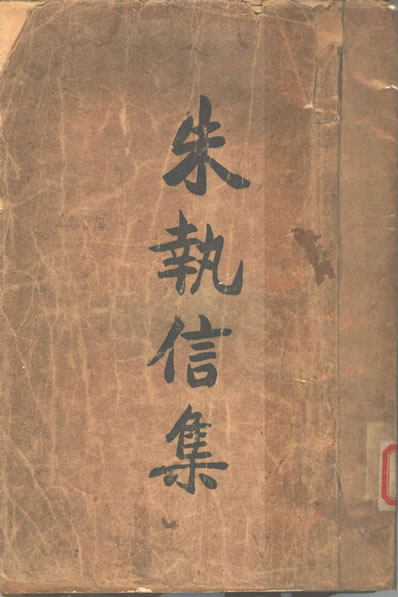 朱執信集